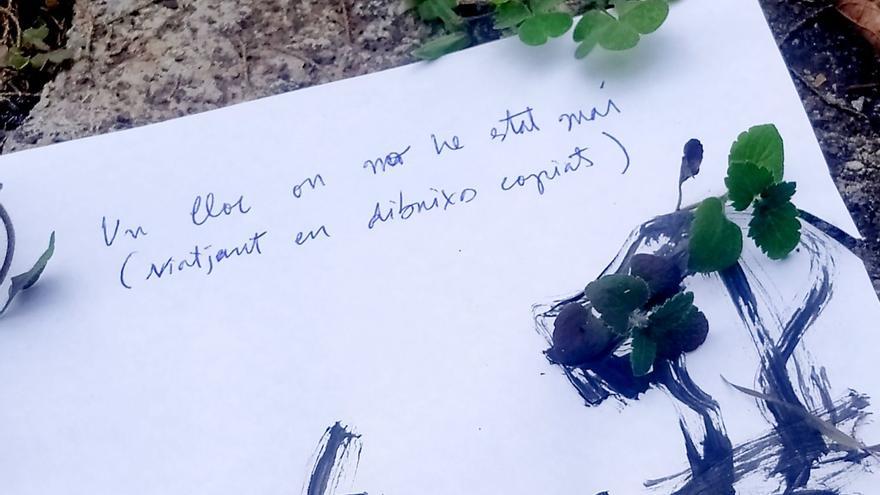 Un lloc on no he estat mai
(viatjant en dibuixos copiats)